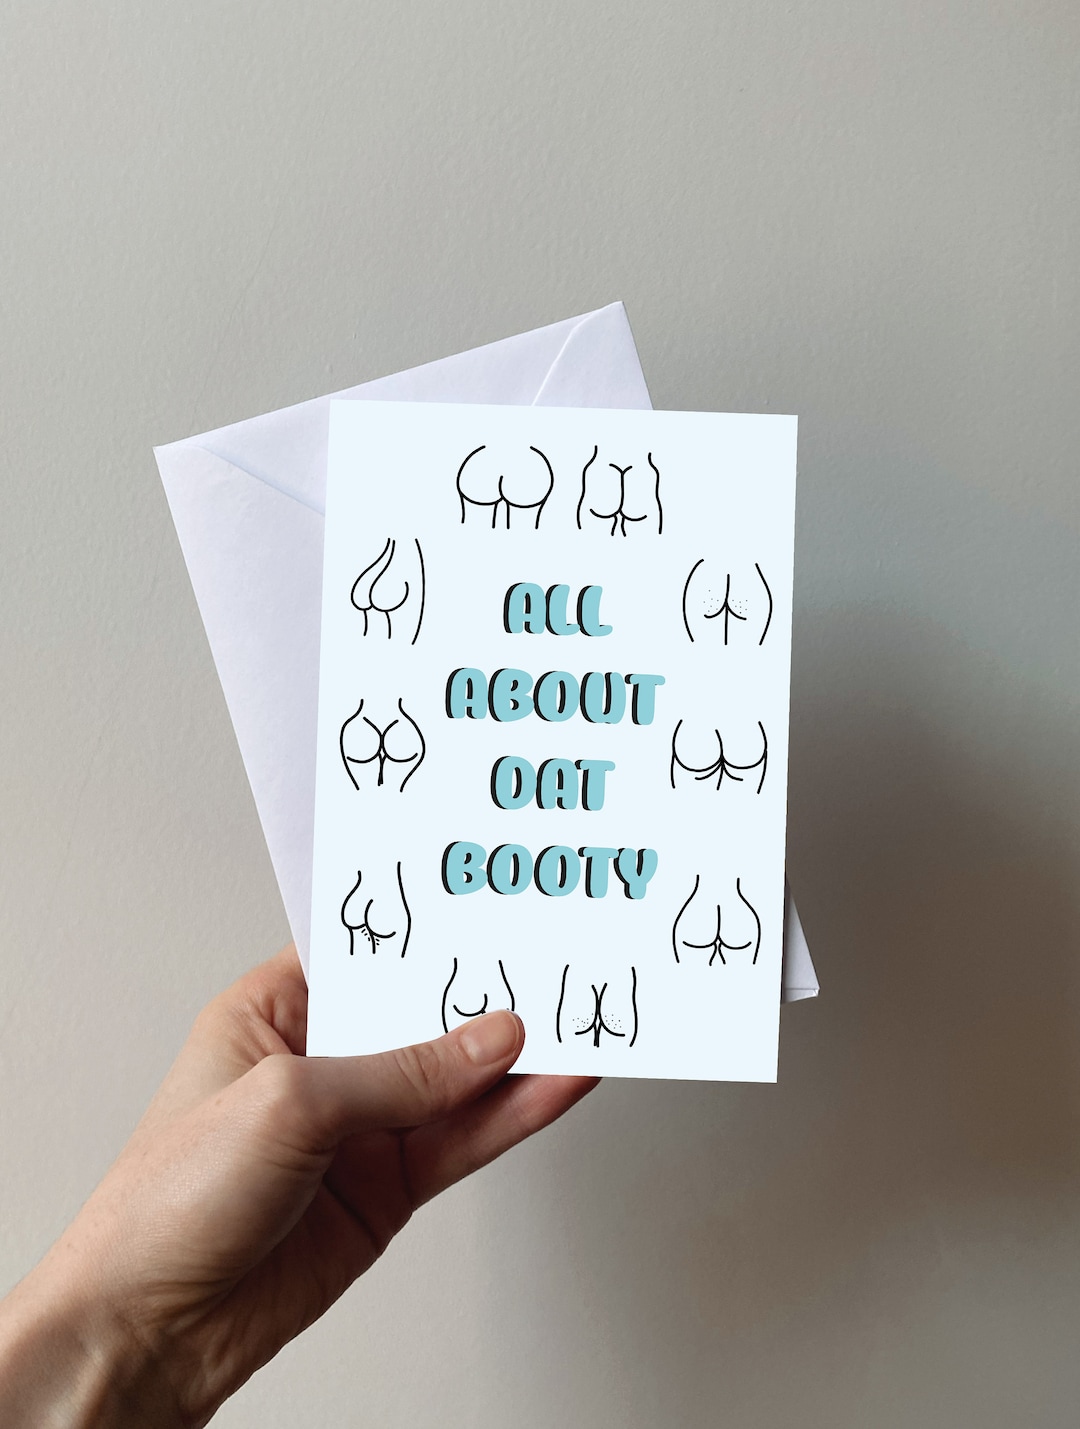 ALL
ABOUT
DAT
BOOTY